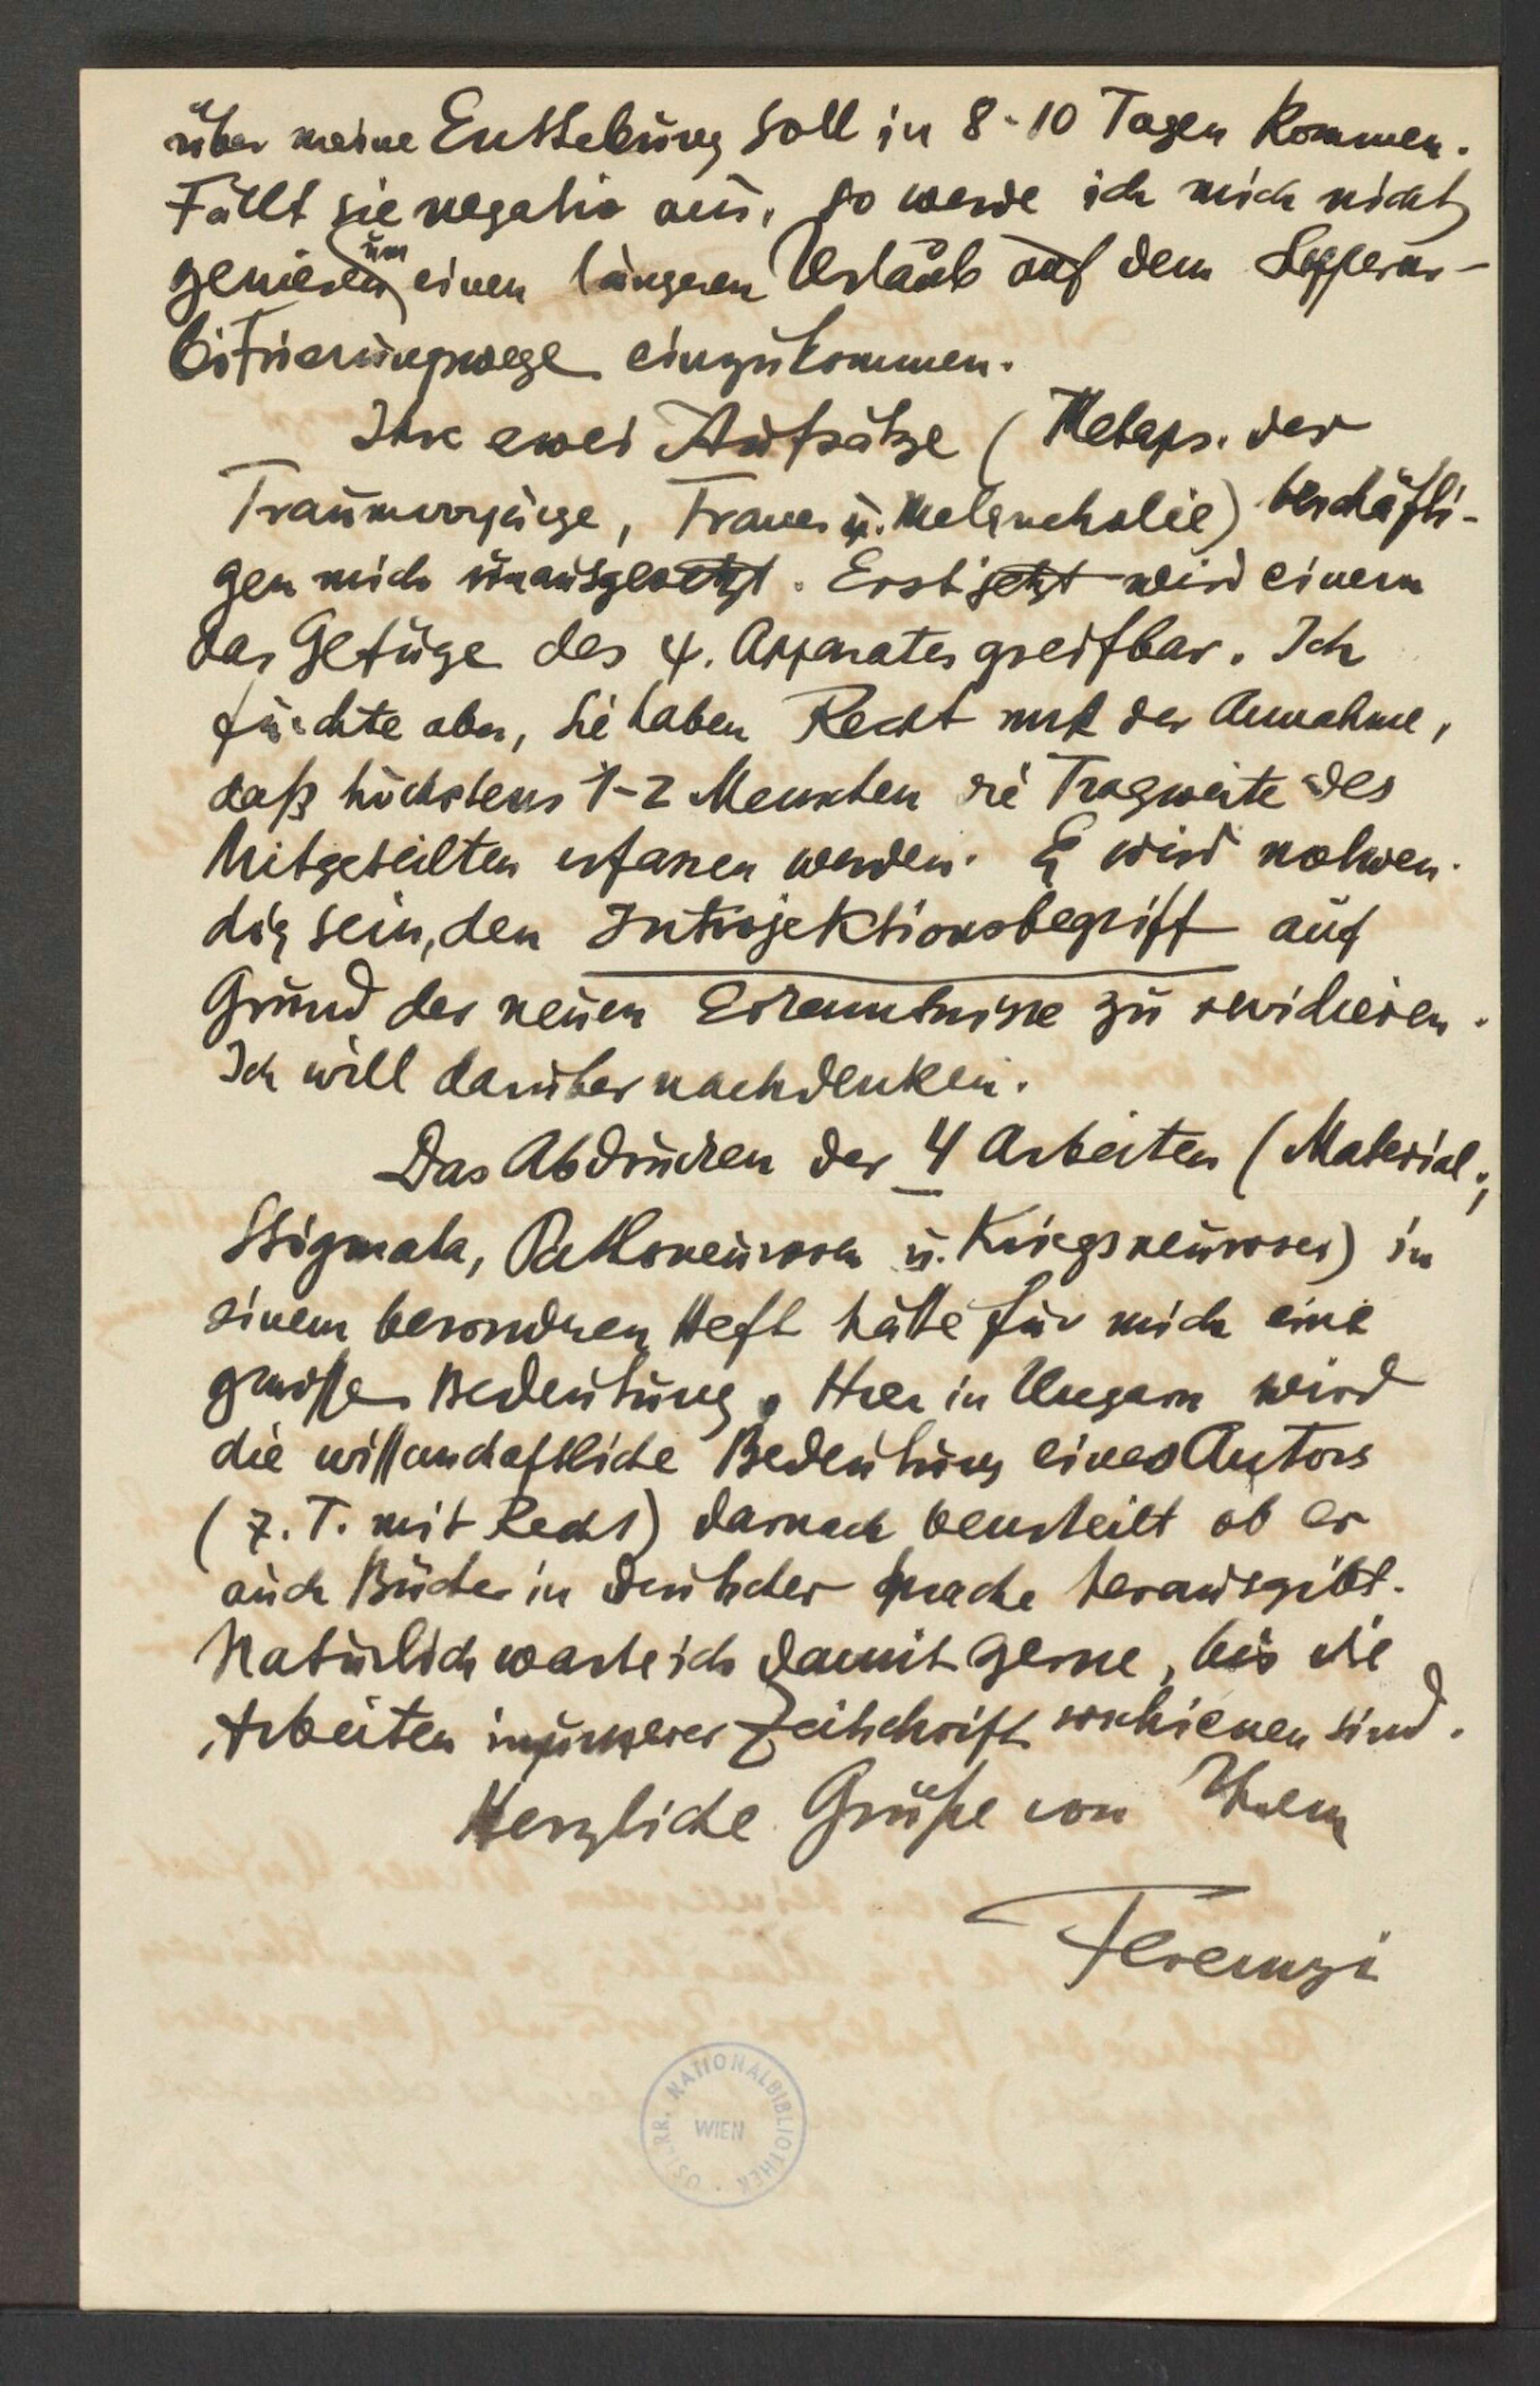 über meine Enthebung soll in 8-10 Tagen kommen.
Fällt sie negativ aus, so werde ich mich nicht
genieren um einen längeren Urlaub auf dem
bitrierungswege einzukommen.
Ihre zwei Aufsätze (Metaps. der
Traumvorgänge, Trauer u. Melancholie) beschäfti-
gen mich unausgesetzt. Erst jetzt wird einem
das Gefüge des ψ. Apparates greifbar. Ich
fürchte aber, Sie haben Recht mit der Annahme,
daß höchstens 1-2 Menschen die Tragweite des
Mitgeteilten erfassen werden. Es wird notwen-
dig sein, den Introjektionsbegriff auf
Grund der neuen Erkenntnisse zu revidieren.
Ich will darüber nachdenken.
Das Abdrucken der 4 Arbeiten (Material.,
Stigmata, Pathoneurosen u. Kriegsneurosen) in
einem besondren Heft hätte für mich eine
große Bedeutung. Hier in Ungarn wird
die wissenschaftliche Bedeutung eines Autors
(z. T. mit Recht) darnach beurteilt ob er
auch Bücher in deutscher Sprache herausgibt.
Natürlich warte ich damit gerne, bis die
Arbeiten in unserer Zeitschrift erschienen sind.
Herzliche Grüße von Ihrem
Ferenczi
ÖSTERR. NATIONALBIBLIOTHEK
WIEN